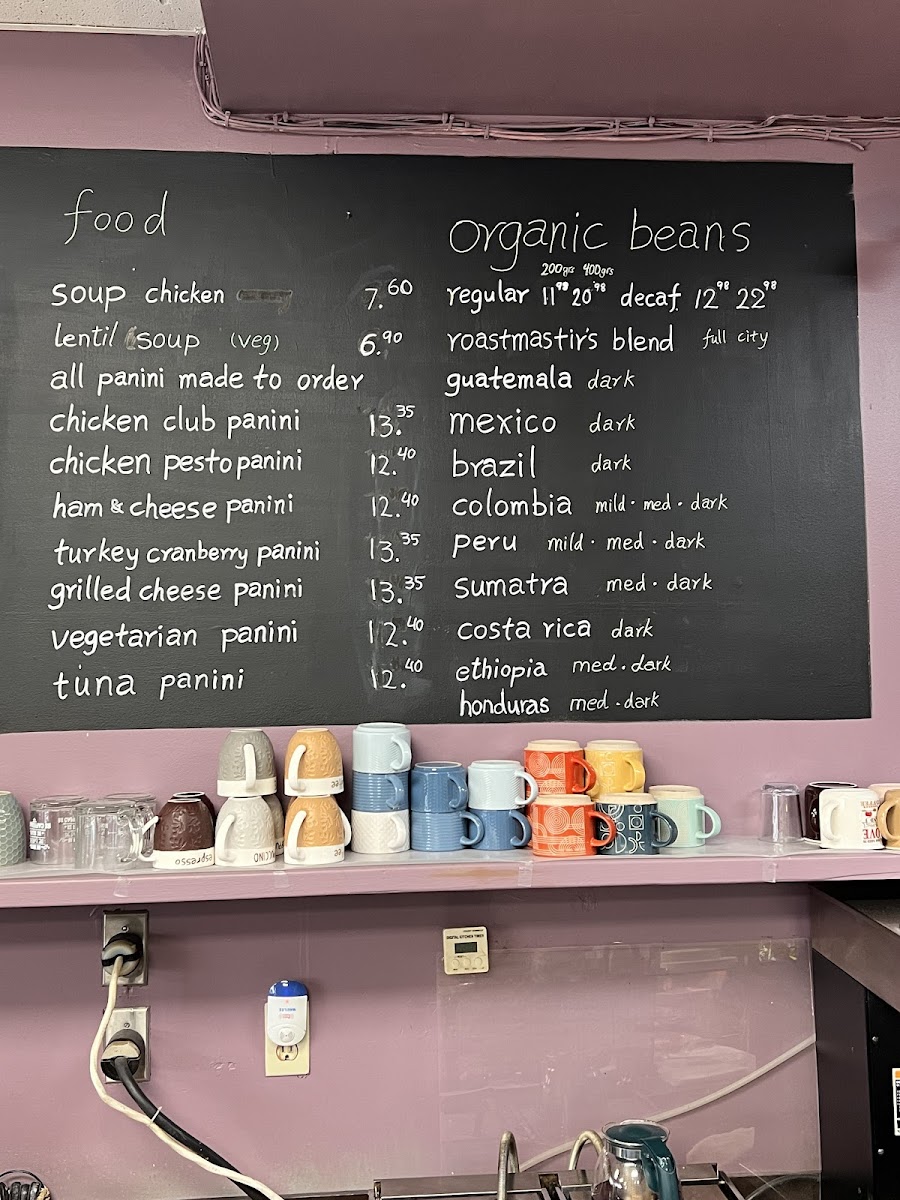 food
soup chicken 7.60
lentil soup (veg) 6.90
all panini made to order
chicken club panini 13.35
chicken pesto panini 12.40
ham & cheese panini 12.40
turkey cranberry panini 13.35
grilled cheese panini 13.35
vegetarian panini 12.40
tuna panini 12.40
organic beans
200grs 400grs
regular 11.98 20.98 decaf 12.98 22.98
roastmastir's blend full city
guatemala dark
mexico dark
brazil dark
colombia mild · med · dark
peru mild · med · dark
sumatra med · dark
costa rica dark
ethiopia med · dark
honduras med · dark
espresso
DIGITAL KITCHEN TIMER